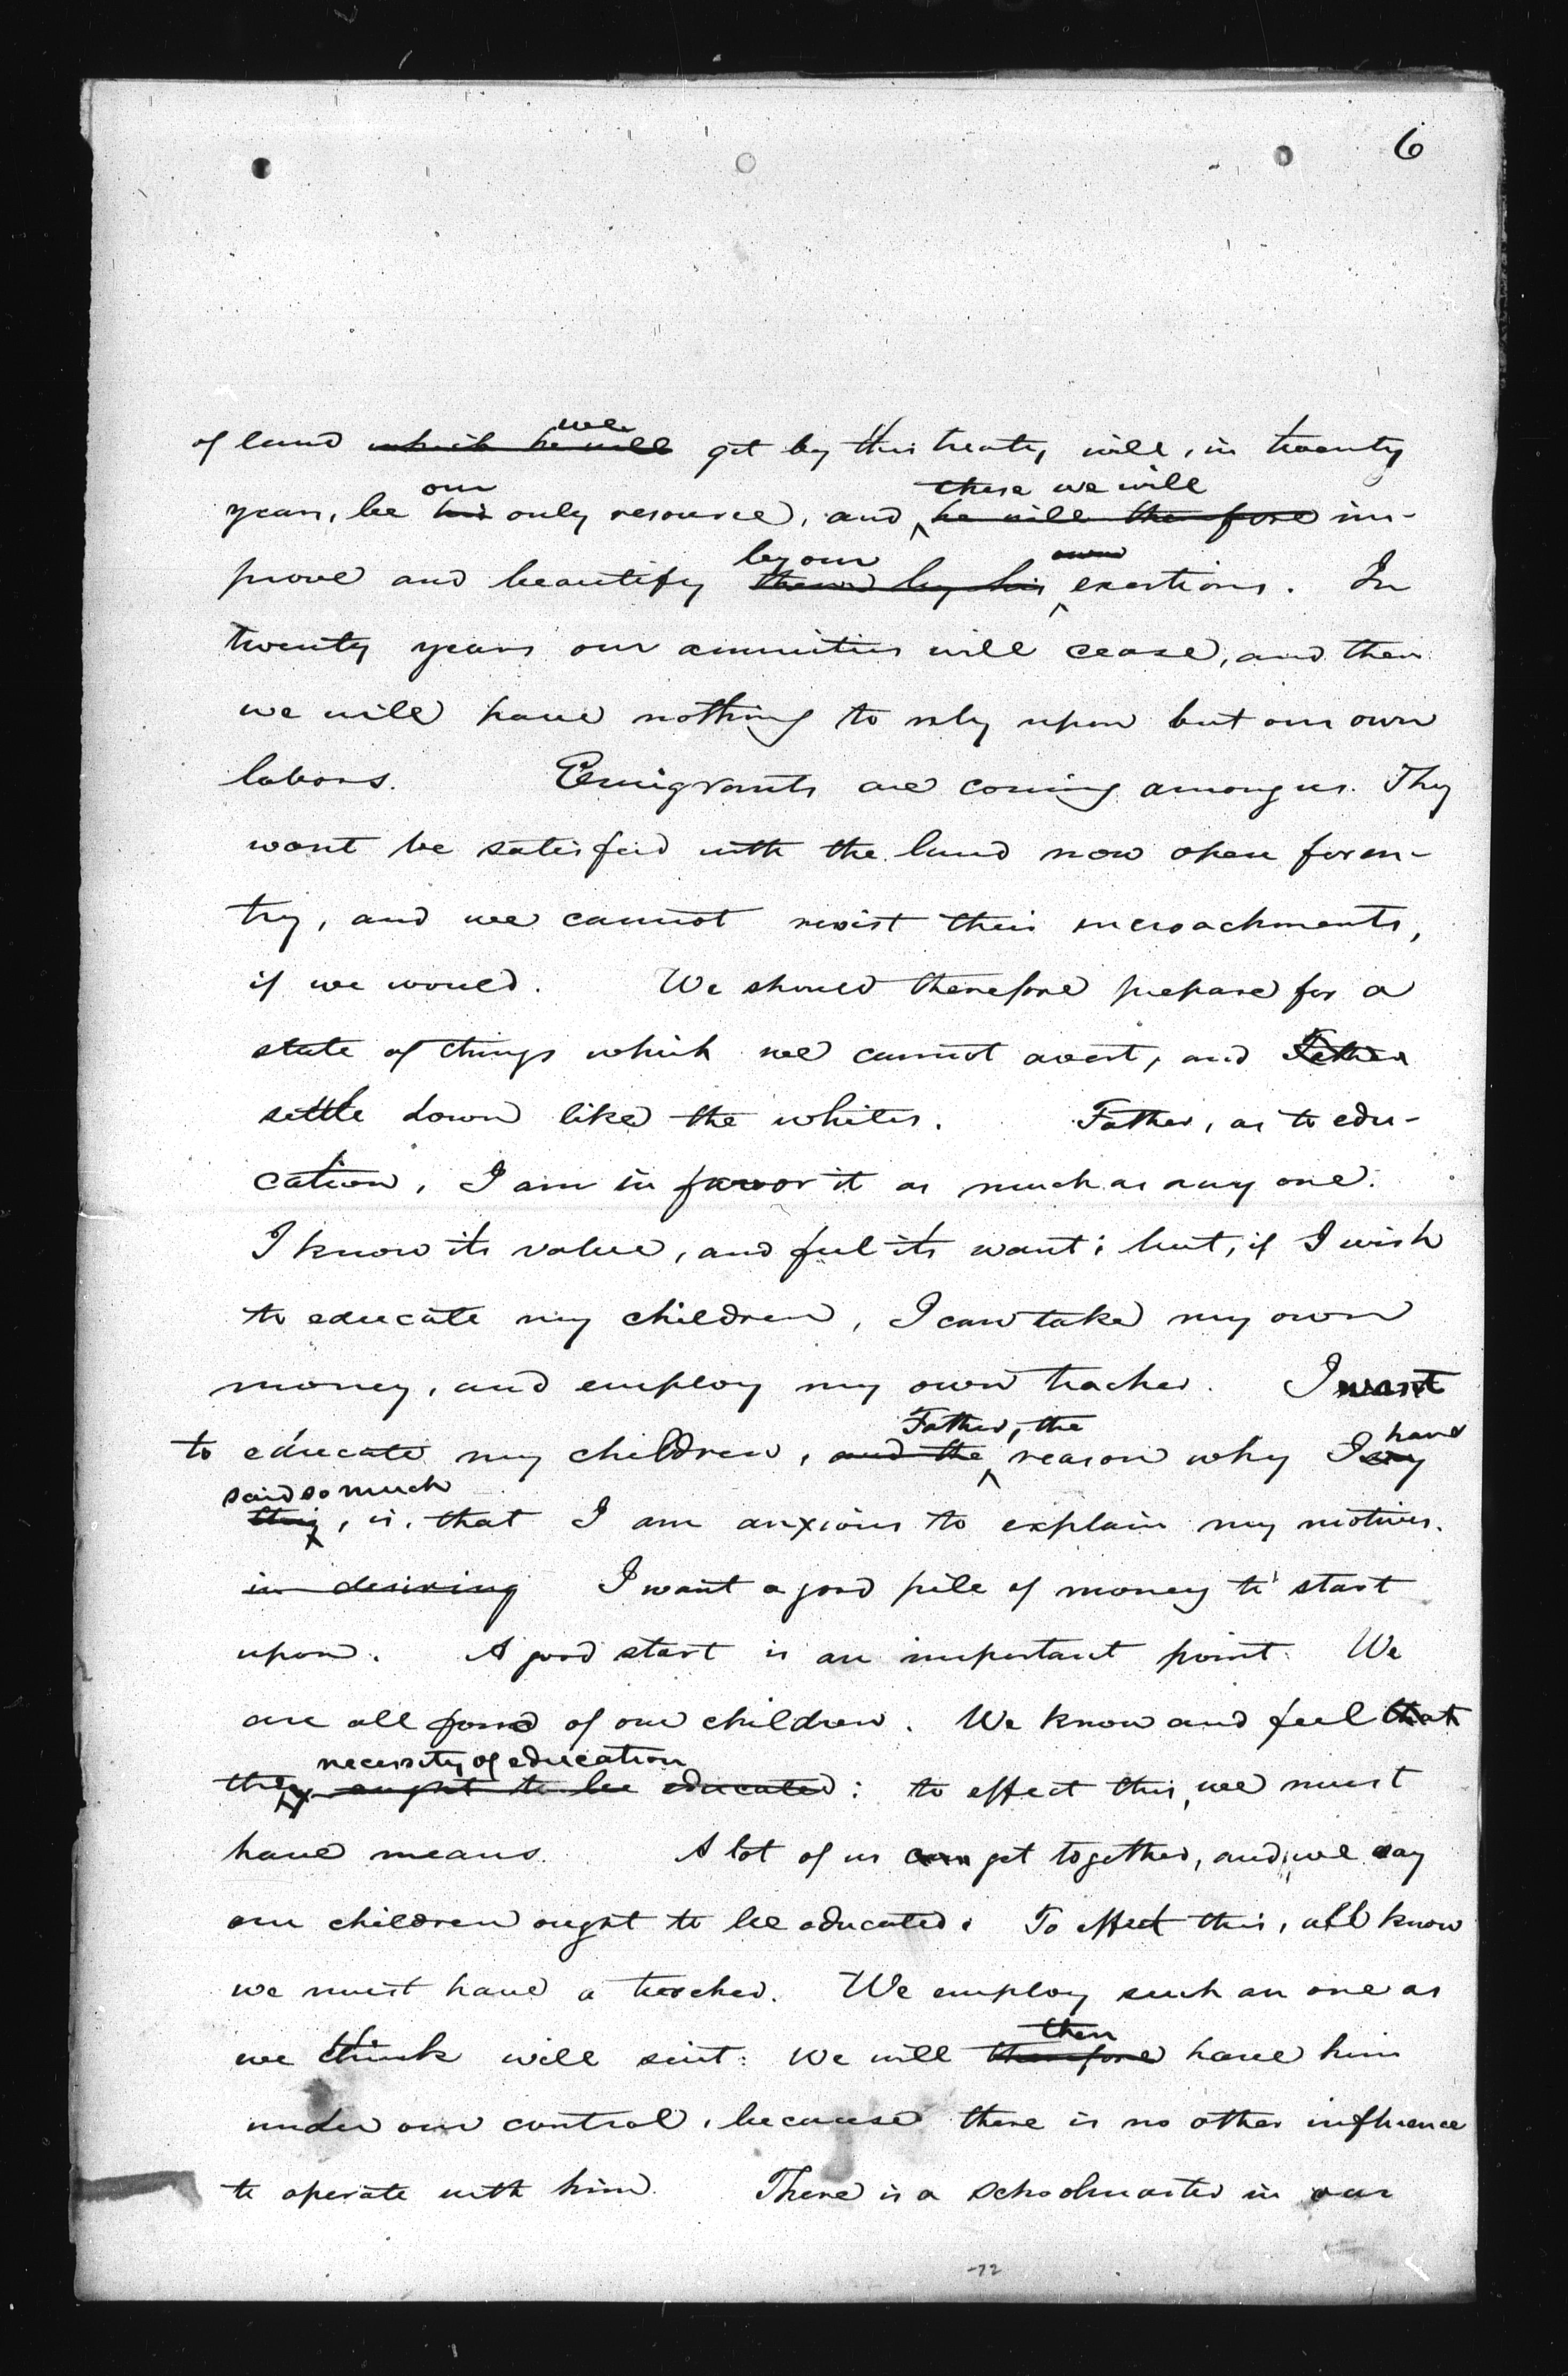 6
of land which he will we get by this treaty, will, in twenty
years, be his our only resource, and he will therefore these we will im-
prove and beautify them by his by our own exertions. In
twenty years our annuities will cease, and then
we will have nothing to rely upon but our own
labors. Emigrants are coming among us. They
wont be satisfied with the land now open for en-
try, and we cannot resist their encroachments,
if we would. We should therefore prepare for a
state of things which we cannot avert, and
settle down like the whites. Father, as to edu-
cation, I am in favor it as much as any one.
I know its value, and feel its want; but, if I wish
to educate my children, I can take my own
money, and employ my own teacher. I want
to educate my children, and the Father, the reason why I say have
this said so much, is, that I am anxious to explain my motives.
in desiring I want a good pile of money to start
upon. A good start is an important point. We
are all fond of our children. We know and feel that
they ought to be educated necessity of education: to effect this, we must
have means. A lot of us can get together, and we say
our children ought to be educated. To effect this, all know
we must have a teacher. We employ such an one as
we think will suit: We will therefore then have him
under our control, because there is no other influence
to operate with him. There is a schoolmaster in our
-72